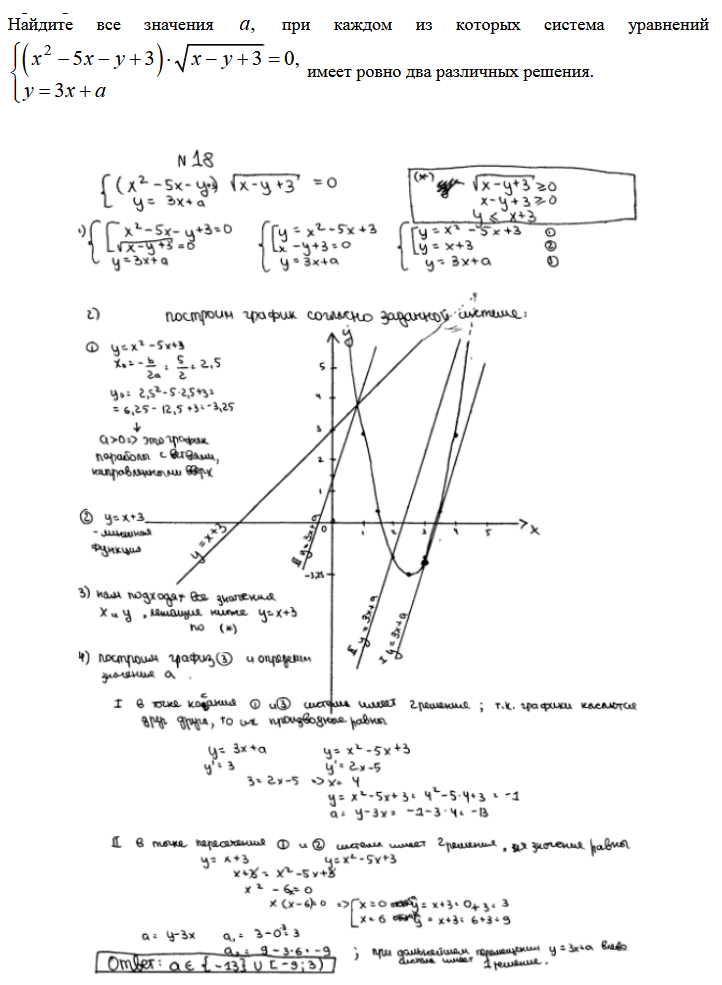 Найдите все значения a, при каждом из которых система уравнений
{(x² − 5x − y + 3) · √(x − y + 3) = 0,
y = 3x + a
имеет ровно два различных решения.
N 18
{(x² − 5x − y+3) √(x−y+3) = 0
y = 3x+a
(*) √(x−y+3) ≥ 0
x−y+3 ≥ 0
y ≤ x+3
1) {[x²−5x−y+3=0 {[y = x²−5x+3 {[y = x²−5x+3 ①
√(x−y+3)=0 x−y+3=0 y = x+3 ②
y=3x+a y=3x+a y=3x+a ③
2) построим график согласно заданной системе:
① y=x²−5x+3
x₀=−b/2a = 5/2 = 2,5
y₀= 2,5²−5·2,5+3=
= 6,25−12,5+3=−3,25
↓
a>0 => это график
параболы с ветвями,
направленными вверх
② y=x+3
- линейная
функция
y
5
4
3
2
1
0 1 2 3 4 5 x
−3,25
y=x+3
III y=3x+a
II y=3x+a
I y=3x+a
3) нам подходят все значения
x и y, лежащие ниже y=x+3
по (*)
4) построим графиз ③ и определим
значения a.
I в точке касания ① и ③ система имеет 2 решение; т.к. графики касаются
друг друга, то их производные равны
y = 3x+a y = x²−5x+3
y' = 3 y' = 2x−5
3 = 2x−5 => x = 4
y = x²−5x+3 = 4²−5·4+3 = −1
a = y−3x = −1−3·4 = −13
II в точке пересечения ① и ② система имеет 2 решение, значение равны
y = x+3 y=x²−5x+3
x+3 = x²−5x+3
x² − 6x=0
x(x−6)=0 => [x=0 y=x+3=0+3=3
x=6 y=x+3=6+3=9
a = y−3x a₁ = 3−0=3
a₂ = 9−3·6=−9 ; при дальнейшем перемещении y=3x+a влево
система имеет 1 решение.
Ответ: a ∈ {−13} ∪ [−9; 3)